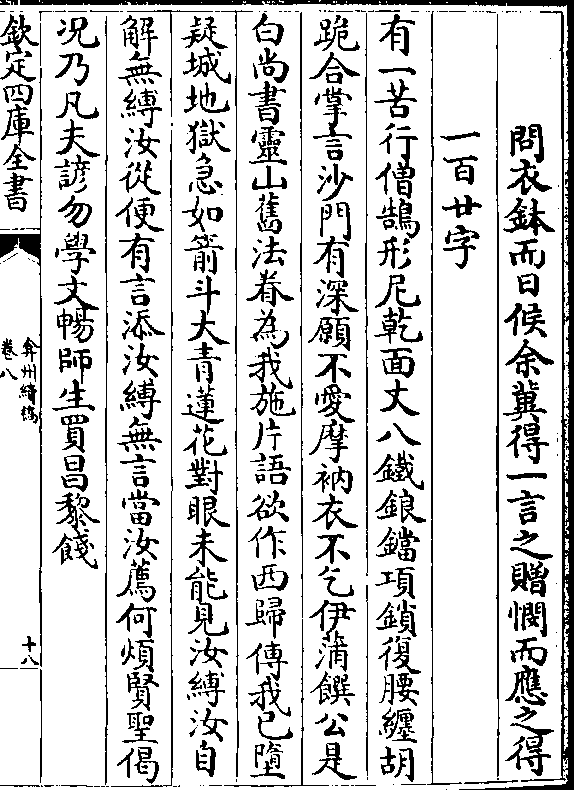 問衣鉢而日候余冀得一言之贈憫而應之得
一百廿字
有一苦行僧鵠形尼乾面丈八鐵鋃鐺項鎖復腰纏胡
跪合掌言沙門有深願不愛摩衲衣不乞伊蒲饌公是
白尚書靈山舊法眷為我施片語欲作西歸傳我已墮
疑城地獄急如箭斗大青蓮花對眼未能見汝縛汝自
解無縛汝從便有言添汝縛無言當汝薦何煩賢聖偈
况乃凡夫諺勿學文暢師生買昌黎餞
欽定四庫全書
弇州續稿
卷八
十八